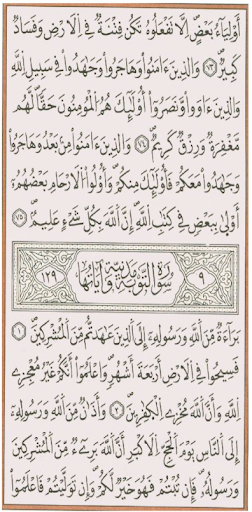 أَوْلِيَآءُ بَعْضٍ إِلَّا تَفْعَلُوهُ تَكُن فِتْنَةٌ فِي ٱلْأَرْضِ وَفَسَادٌ
كَبِيرٌ ٧٣ وَٱلَّذِينَ ءَامَنُوا۟ وَهَاجَرُوا۟ وَجَٰهَدُوا۟ فِي سَبِيلِ ٱللَّهِ
وَٱلَّذِينَ ءَاوَوا۟ وَّنَصَرُوٓا۟ أُو۟لَٰٓئِكَ هُمُ ٱلْمُؤْمِنُونَ حَقًّا لَّهُم
مَّغْفِرَةٌ وَرِزْقٌ كَرِيمٌ ٧٤ وَٱلَّذِينَ ءَامَنُوا۟ مِنۢ بَعْدُ وَهَاجَرُوا۟
وَجَٰهَدُوا۟ مَعَكُمْ فَأُو۟لَٰٓئِكَ مِنكُمْ وَأُو۟لُوا۟ ٱلْأَرْحَامِ بَعْضُهُمْ
أَوْلَىٰ بِبَعْضٍ فِي كِتَٰبِ ٱللَّهِ إِنَّ ٱللَّهَ بِكُلِّ شَيْءٍ عَلِيمٌۢ ٧٥
٩ سُورَةُ التَّوْبَةِ مَدَنِيَّةٌ وَآيَاتُهَا ١٢٩
بَرَآءَةٌ مِّنَ ٱللَّهِ وَرَسُولِهِۦٓ إِلَى ٱلَّذِينَ عَٰهَدتُّم مِّنَ ٱلْمُشْرِكِينَ ١
فَسِيحُوا۟ فِي ٱلْأَرْضِ أَرْبَعَةَ أَشْهُرٍ وَٱعْلَمُوٓا۟ أَنَّكُمْ غَيْرُ مُعْجِزِي
ٱللَّهِ وَأَنَّ ٱللَّهَ مُخْزِي ٱلْكَٰفِرِينَ ٢ وَأَذَٰنٌ مِّنَ ٱللَّهِ وَرَسُولِهِۦٓ
إِلَى ٱلنَّاسِ يَوْمَ ٱلْحَجِّ ٱلْأَكْبَرِ أَنَّ ٱللَّهَ بَرِيٓءٌ مِّنَ ٱلْمُشْرِكِينَ
وَرَسُولُهُۥ فَإِن تُبْتُمْ فَهُوَ خَيْرٌ لَّكُمْ وَإِن تَوَلَّيْتُمْ فَٱعْلَمُوٓا۟